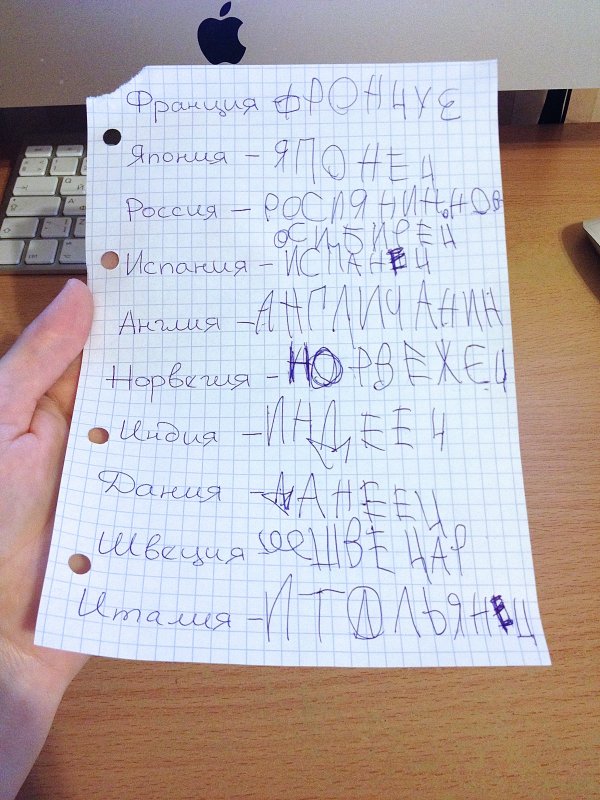 Франция ФРОНЦУЕ
Япония – ЯПОНЕЦ
Россия – РОСИЯНИН.НОВ
ОСИБИРЕЦ
Испания – ИСПАНЕЦ
Англия – АНГЛИЧАНИН
Норвегия – НОРВЕЖЕЦ
Индия – ИНДЕЕЦ
Дания – ДАНЕЕЦ
Швеция ШВЕЦАР
Италия – ИТОЛЬЯНЕЦ